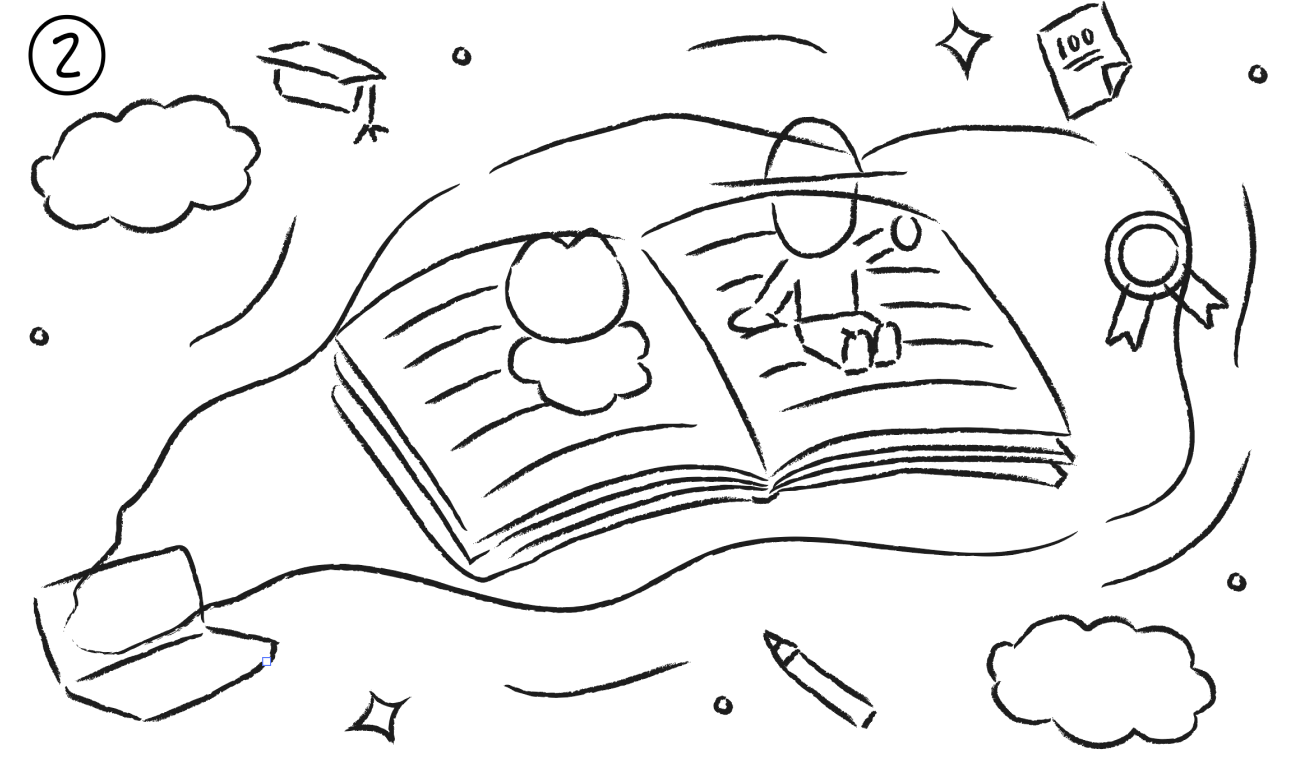 2
100